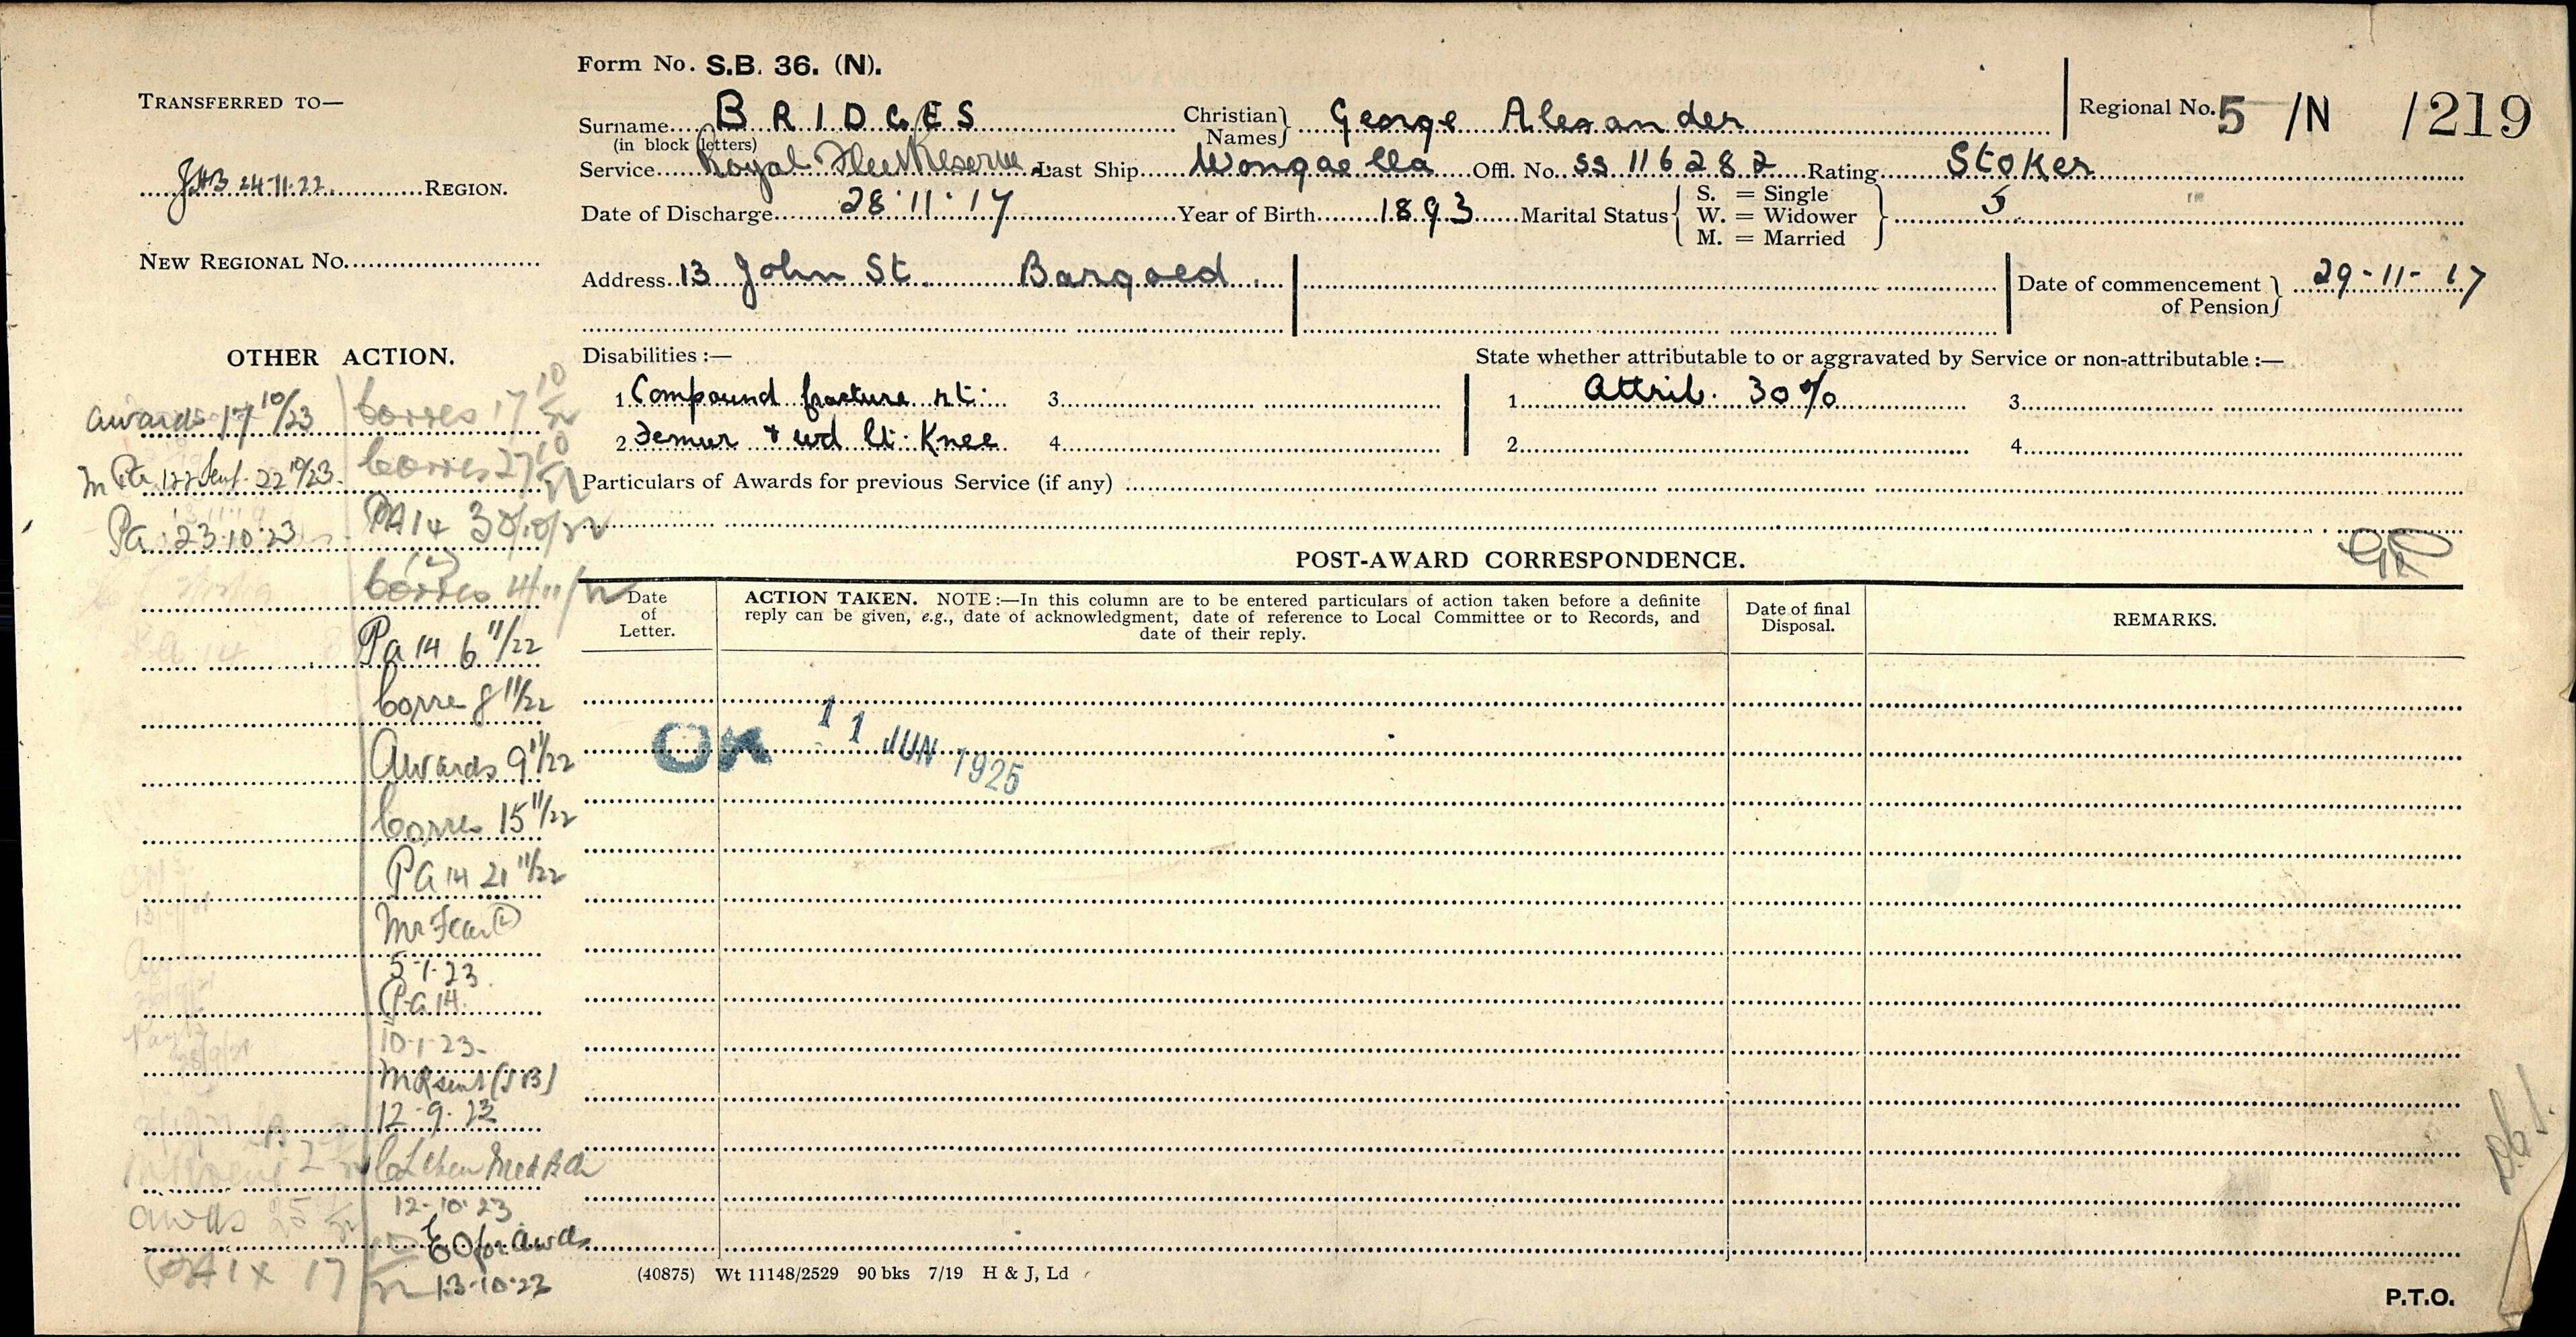 Form No. S.B. 36. (N).
TRANSFERRED TO—
Surname BRIDGES Christian Names George Alexander Regional No. 5 /N /219
(in block letters)
24.11.22 REGION.
Service Royal Fleet Reserve Last Ship Wongaella Offl. No. SS 116282 Rating Stoker
Date of Discharge 28.11.17 Year of Birth 1893 Marital Status { S. = Single W. = Widower M. = Married } S.
NEW REGIONAL No.
Address 13 John St. Bargoed. Date of commencement of Pension 29-11-17
OTHER ACTION.
Disabilities :— State whether attributable to or aggravated by Service or non-attributable :—
1 Compound fracture rt: 3 1 Attrib. 30% 3
2 Femur + wd lt: Knee 4 2 4
Particulars of Awards for previous Service (if any)
Awards 17 10/23
22 10/23.
Pa 23.10.23
Corres 17 10/22
Corres 27 10/22
PA 14 30/10/22
Corres 4/11/22
Pa 14 6 11/22
Corre 8 11/22
Awards 9 11/22
Corres 15 11/22
PA 14 21 11/22
Mr
5.1.23
P.a 14.
10-1-23-
MR sent (SB)
12-9-23
12-10-23
EO for Awds
13-10-23
Awds 25
17
POST-AWARD CORRESPONDENCE.
Date of Letter.
ACTION TAKEN. NOTE :—In this column are to be entered particulars of action taken before a definite
reply can be given, e.g., date of acknowledgment, date of reference to Local Committee or to Records, and
date of their reply.
Date of final Disposal.
REMARKS.
11 JUN 1925
(40875) Wt 11148/2529 90 bks 7/19 H & J, Ld
P.T.O.